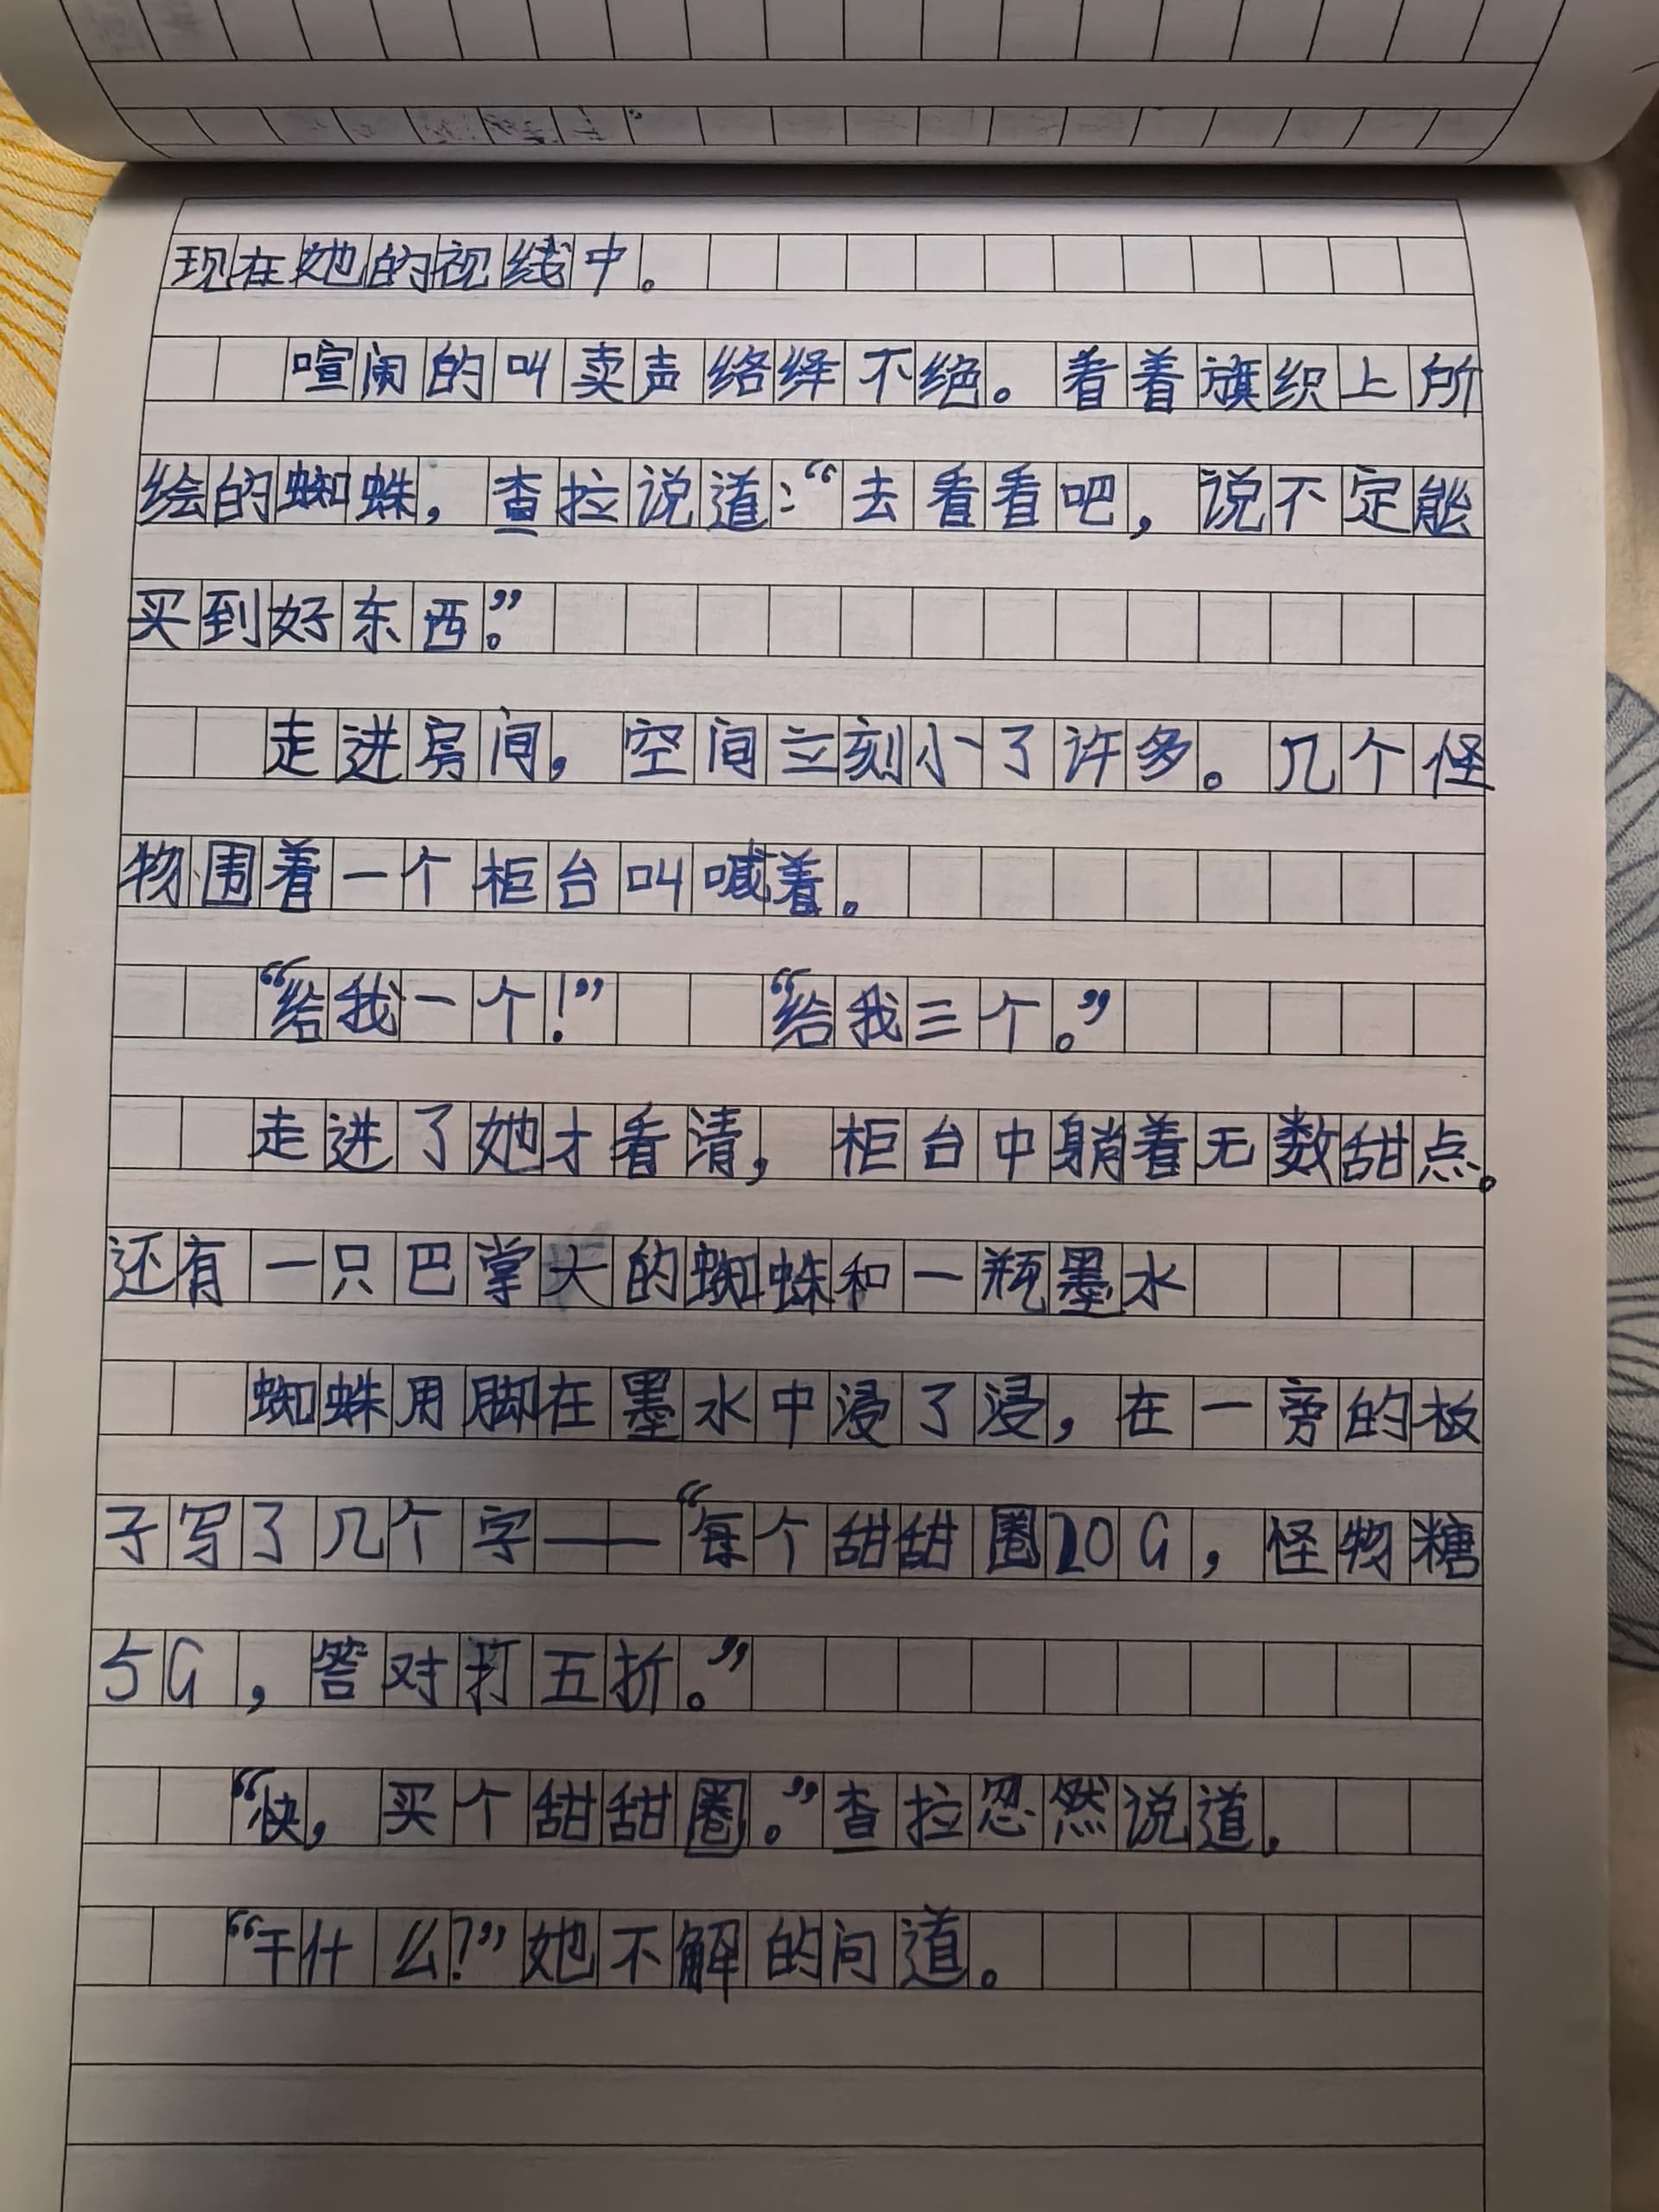 现在她的视线中。
喧闹的叫卖声络绎不绝。看着旗织上所
绘的蜘蛛，查拉说道：“去看看吧，说不定能
买到好东西。”
走进房间，空间立刻小了许多。几个怪
物围着一个柜台叫喊着。
“给我一个！” “给我三个。”
走进了她才看清，柜台中躺着无数甜点。
还有一只巴掌大的蜘蛛和一瓶墨水
蜘蛛用脚在墨水中浸了浸，在一旁的板
子写了几个字——“每个甜甜圈20G，怪物糖
5G，答对打五折。”
“快，买个甜甜圈。”查拉忽然说道，
“干什么？”她不解的问道。